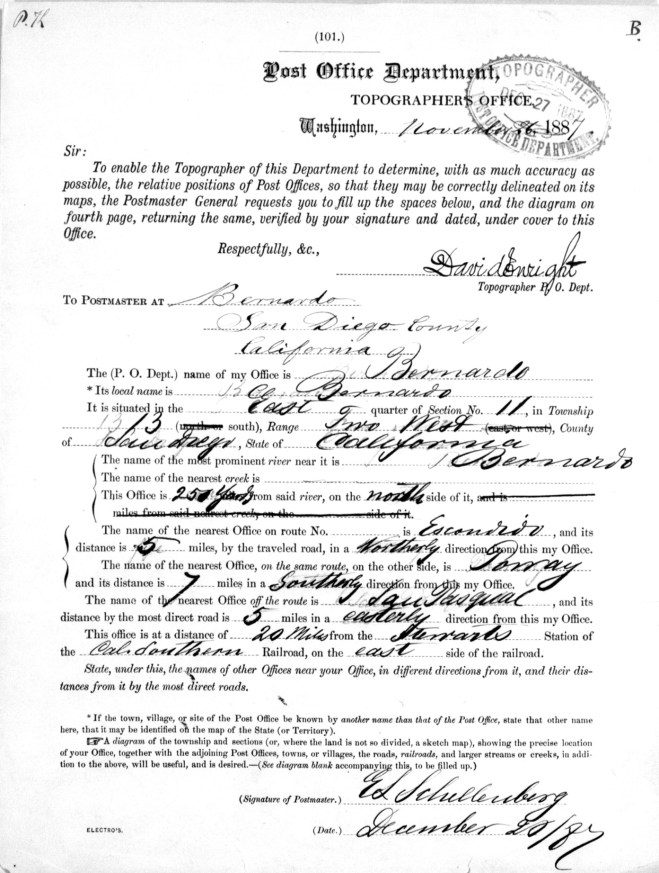 P. K
B.
(101.)
Post Office Department,
TOPOGRAPHER'S OFFICE,
Washington, November 26, 1887.
TOPOGRAPHER
DEC 27 1887
POST OFFICE DEPARTMENT.
Sir:
To enable the Topographer of this Department to determine, with as much accuracy as
possible, the relative positions of Post Offices, so that they may be correctly delineated on its
maps, the Postmaster General requests you to fill up the spaces below, and the diagram on
fourth page, returning the same, verified by your signature and dated, under cover to this
Office.
Respectfully, &c.,
David Enright
Topographer P. O. Dept.
TO POSTMASTER AT Bernardo
San Diego County
California
The (P. O. Dept.) name of my Office is Bernardo
* Its local name is Bernardo
It is situated in the East quarter of Section No. 11, in Township
13 (north or south), Range Two West (east or west), County
of San Diego, State of California
The name of the most prominent river near it is Bernardo
The name of the nearest creek is
This Office is 250 Yards from said river, on the north side of it, and is
miles from said nearest creek, on the side of it.
The name of the nearest Office on route No. is Escondido, and its
distance is 5 miles, by the traveled road, in a Northerly direction from this my Office.
The name of the nearest Office, on the same route, on the other side, is Poway
and its distance is 7 miles in a Southerly direction from this my Office.
The name of the nearest Office off the route is San Pasqual, and its
distance by the most direct road is 5 miles in a easterly direction from this my Office.
This office is at a distance of 20 Miles from the Stewarts Station of
the Cal. Southern Railroad, on the east side of the railroad.
State, under this, the names of other Offices near your Office, in different directions from it, and their dis-
tances from it by the most direct roads.
* If the town, village, or site of the Post Office be known by another name than that of the Post Office, state that other name
here, that it may be identified on the map of the State (or Territory).
☞ A diagram of the township and sections (or, where the land is not so divided, a sketch map), showing the precise location
of your Office, together with the adjoining Post Offices, towns, or villages, the roads, railroads, and larger streams or creeks, in addi-
tion to the above, will be useful, and is desired.—(See diagram blank accompanying this, to be filled up.)
(Signature of Postmaster.) E S Schullenberg
ELECTRO'S.
(Date.) December 20/87